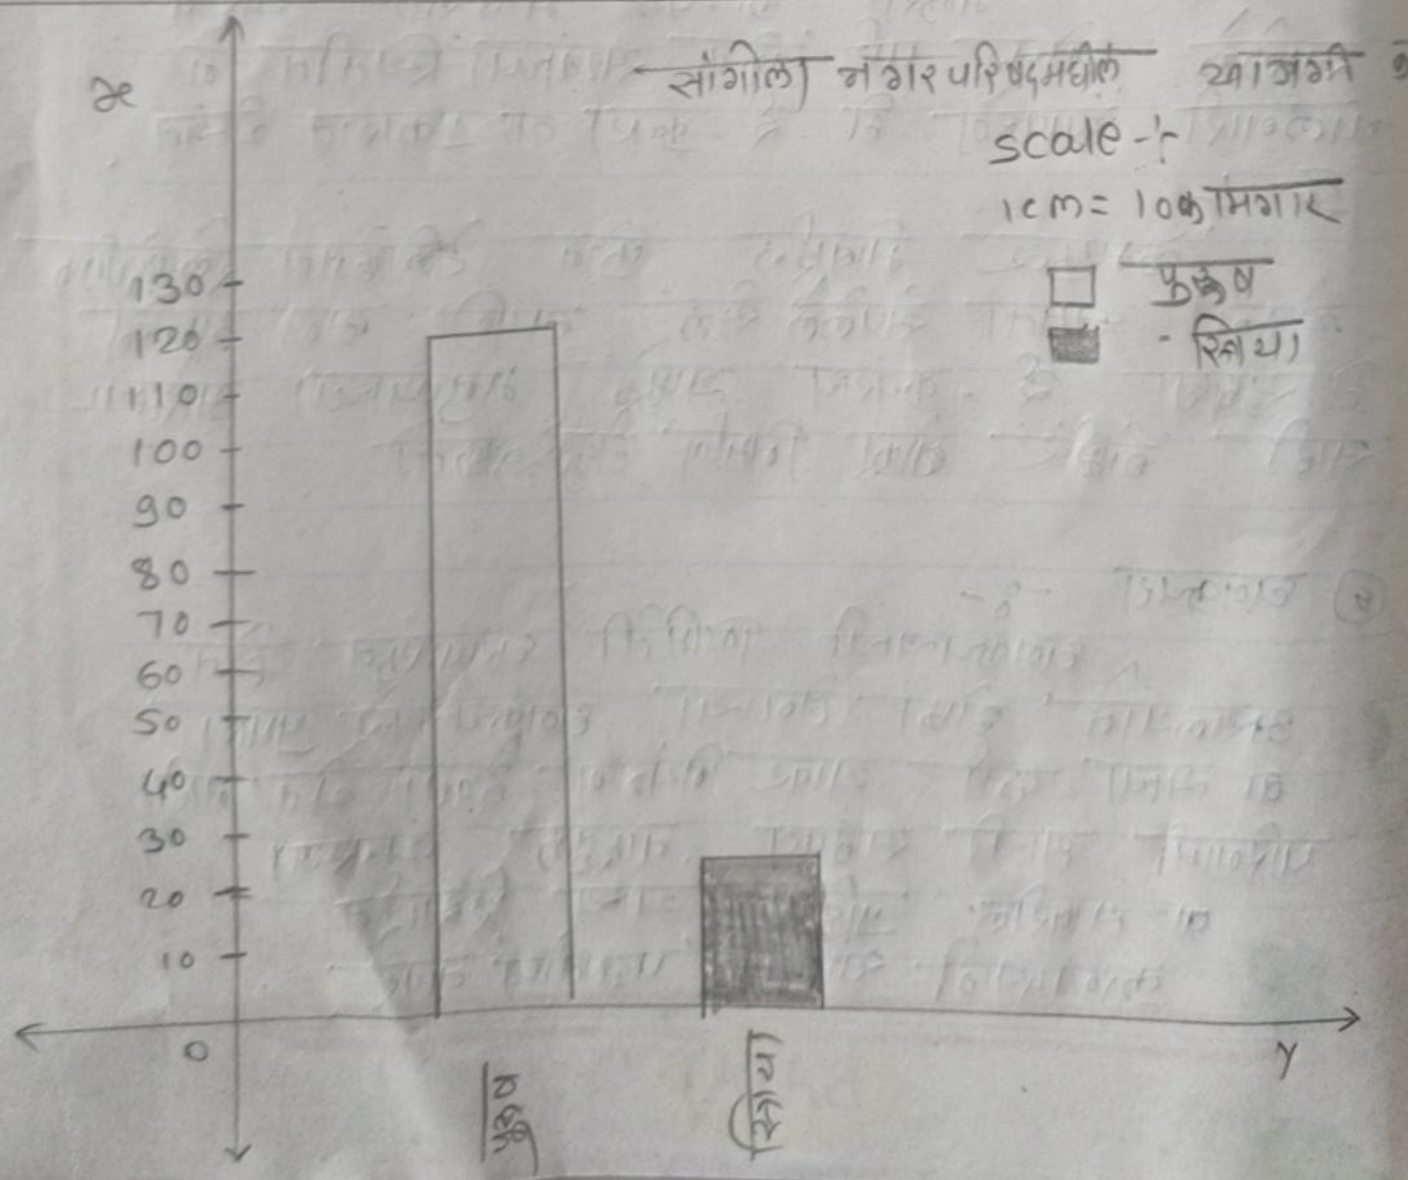 x
सांगोला नगरपरिषदमधील खाजगी
scale :-
1cm = 10 कामगार
पुरुष
- स्त्रिया
130
120
110
100
90
80
70
60
50
40
30
20
10
0
Y
पुरुष
स्त्रिया